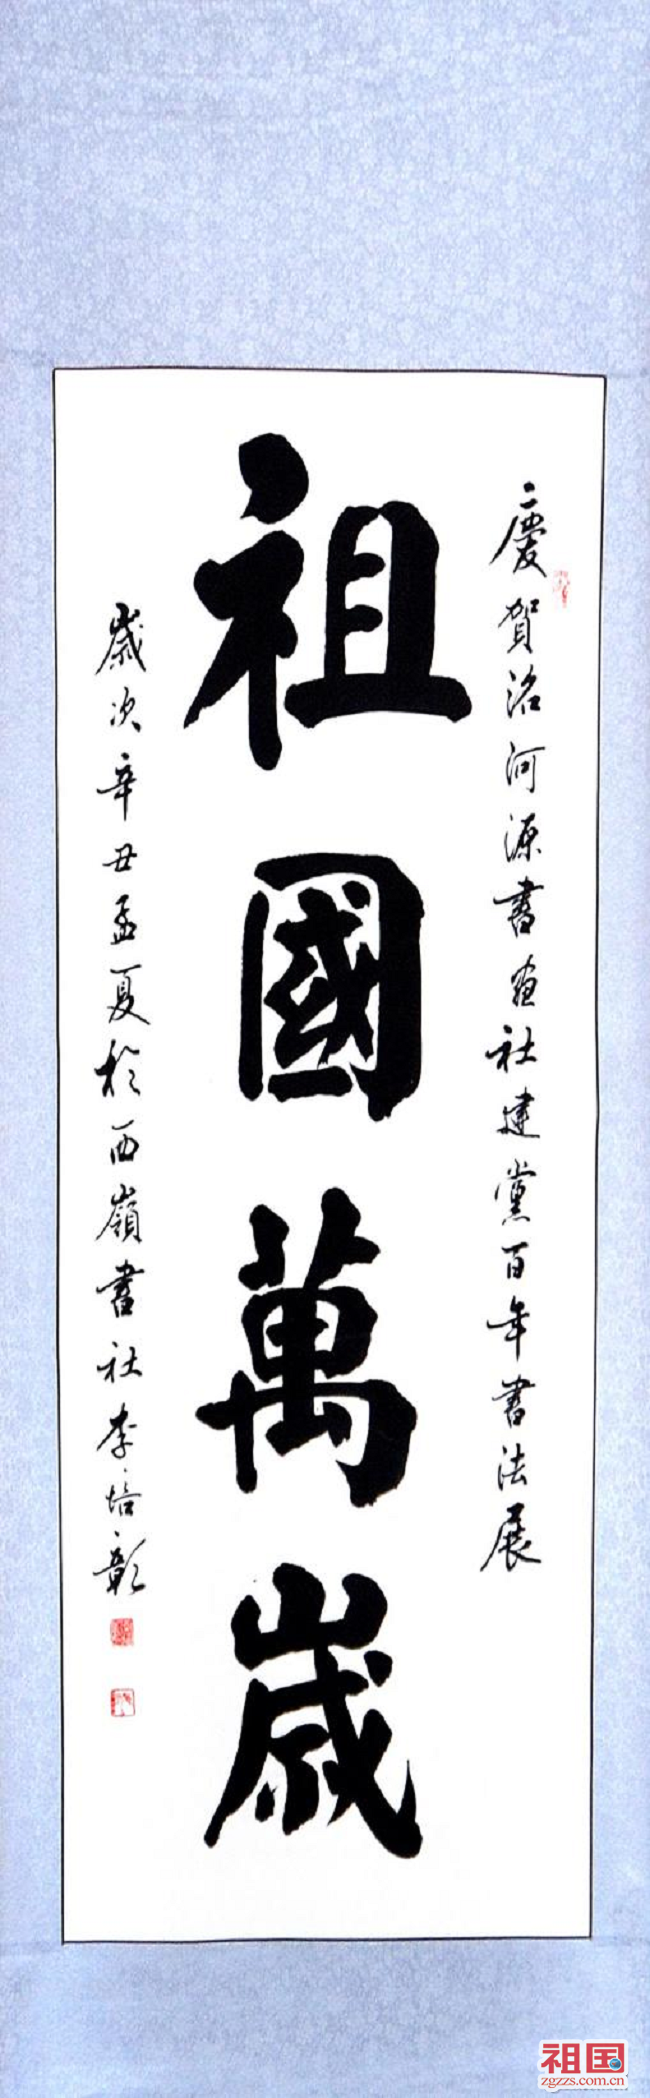 慶賀洺河源書画社建黨百年書法展
祖國萬歲
歲次辛丑孟夏於西嶺書社李培彰
祖国
zgzzs.com.cn